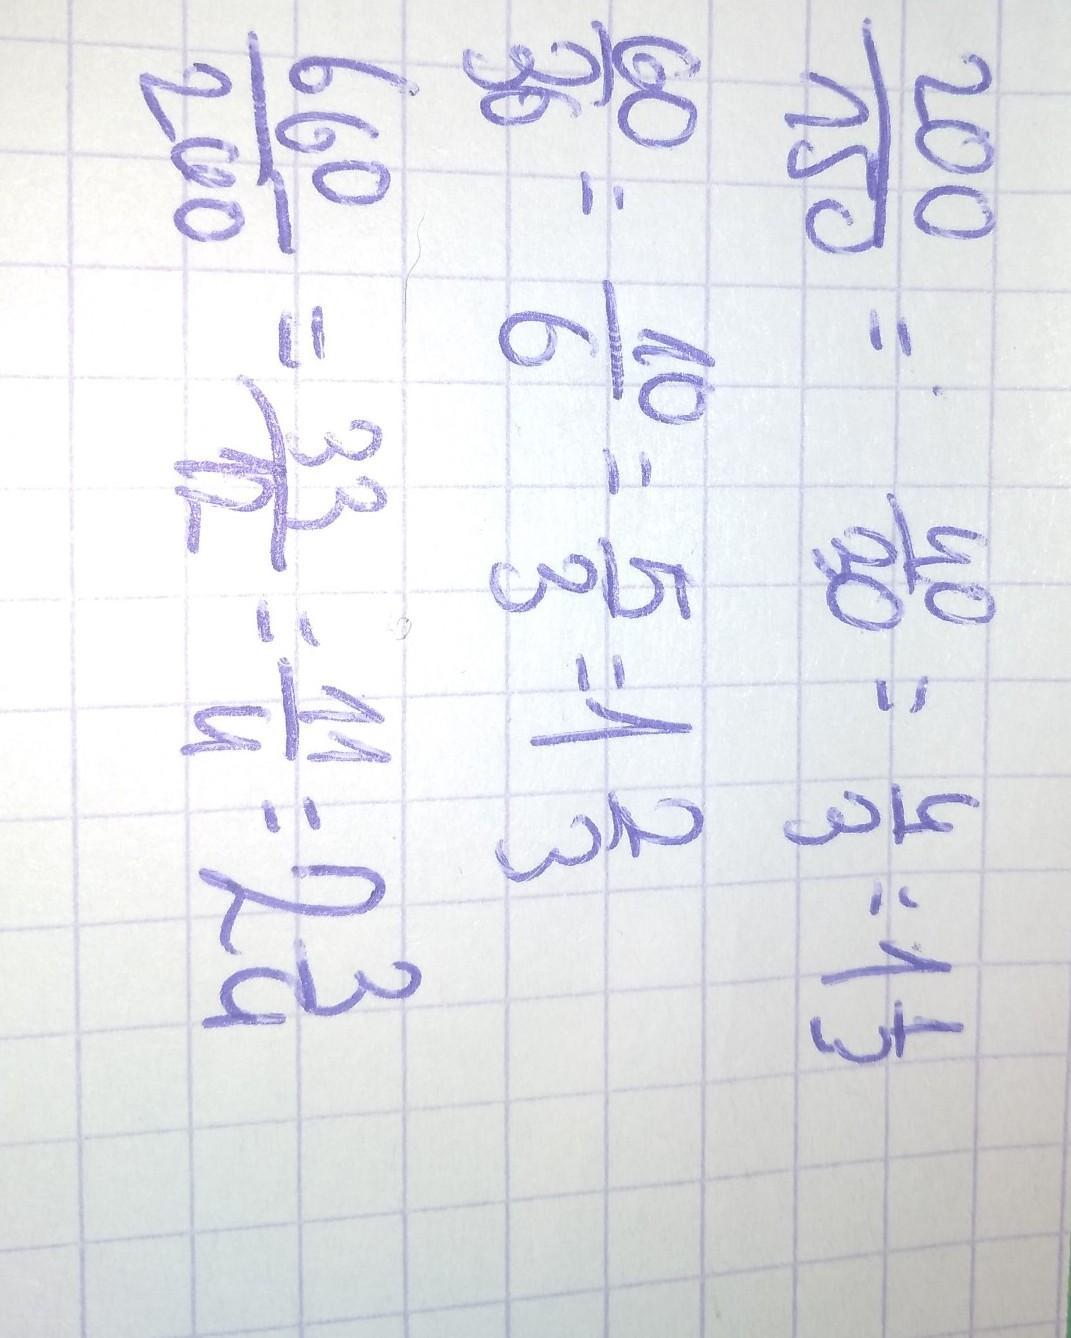 200/150 = 40/30 = 4/3 = 1 1/3
60/36 = 10/6 = 5/3 = 1 2/3
660/240 = 33/12 = 11/4 = 2 3/4